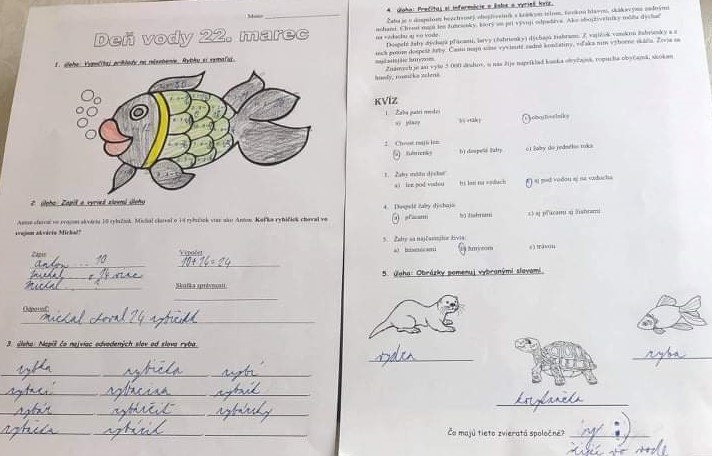 Meno
Deň vody 22. marec
1. úloha: Vypočítaj príklady na násobenie. Rybku si vymaľuj.
2. úloha: Zapíš a vyrieš slovnú úlohu
Anton choval vo svojom akváriu 10 rybičiek. Michal choval o 14 rybičiek viac ako Anton. Koľko rybičiek choval vo
svojom akváriu Michal?
Zápis
Anton ... 10
Michal . o 14 viac
Michal .
Výpočet
10+14=24
Skúška správnosti.
Odpoveď:
Michal choval 24 rybičiek
3. úloha: Napíš čo najviac odvodených slov od slova ryba.
rybka rybička rybí
rybací rybacina rybník
rybár rybárčiť rybársky
4. úloha: Prečítaj si informácie o žabe a vyrieš kvíz.
Žaba je v dospelom bezchvostý obojživelník s krátkym telom, širokou hlavou, skákavými zadnými
nohami. Chvost majú len žubrienky, ktorý im pri vývoji odpadáva. Ako obojživelníky môžu dýchať
na vzduchu aj vo vode.
Dospelé žaby dýchajú pľúcami, larvy (žubrienky) dýchajú žiabrami. Z vajíčok vznikňú žubrienky a z
nich potom dospelé žaby. Často majú silne vyvinuté zadné končatiny, vďaka nim výborne skáču. Živia sa
najčastejšie hmyzom.
Známych je asi vyše 5 000 druhov, u nás žije napríklad kunka obyčajná, ropucha obyčajná, skokan
hnedý, rosnička zelená.
KVÍZ
1. Žaba patrí medzi
a) plazy b) vtáky c) obojživelníky
2. Chvost majú len:
a) žubrienky b) dospelé žaby c) žaby do jedného roka
3. Žaby môžu dýchať
a) len pod vodou b) len na vzduchu c) aj pod vodou aj na vzduchu
4. Dospelé žaby dýchajú
a) pľúcami b) žiabrami c) aj pľúcami aj žiabrami
5. Žaby sa najčastejšie živia:
a) húsenicami b) hmyzom c) trávou
5. úloha: Obrázky pomenuj vybranými slovami.
vydra
korytnačka
ryba
Čo majú tieto zvieratá spoločné?
:)
žijú vo vode